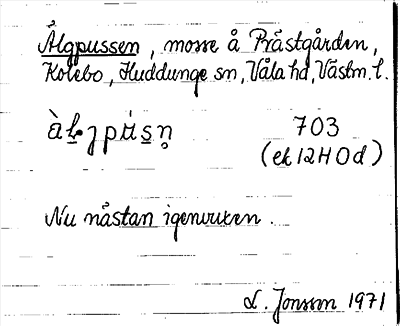 Älgpussen, mosse å Prästgården,
Kolebo, Huddunge sn, Våla hd, Västm. l.
703
(ek 12H0d)
Nu nästan igenvuxen.
L. Jonsson 1971